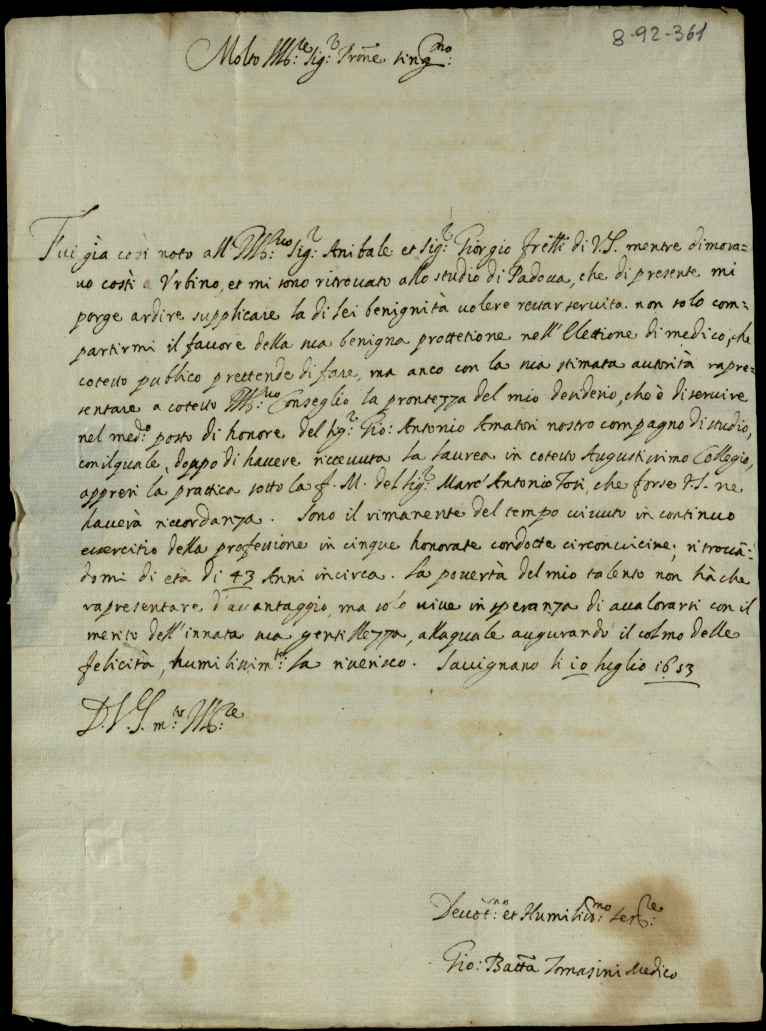 8-92-361
Molto Ill.re Sig.r Prōne sing.mo
Fui già così noto all'Ill.mo Sig.r Anibale et Sig.r Giorgio frēlli di V.S. mentre dimora=
uo costì a Vrbino, et mi sono ritrouato allo studio di Padoua, che di presente mi
porge ardire supplicare la di Lei benignità uolere restar seruita non solo com=
partirmi il fauore della sua benigna prottetione nell'Elettione di medico, che
cotesto publico prettende di fare, ma anco con la sua stimata autorità rapre=
sentare a cotesto Ill.mo Conseglio la prontezza del mio desiderio, che è di seruire
nel med.o posto di honore del Sig.r Gio: Antonio Amatori nostro compagno di studio,
con il quale, doppo di hauere riceuuta la Laurea in cotesto Augustissimo Collegio,
appresi la practica sotto la f. M. del Sig.r Marc'Antonio Tosi, che forse V.S. ne
hauerà ricordanza. Sono il rimanente del tempo uiuuto in continuo
essercitio della professione in cinque honorate condotte circonuicine; ritrouā=
domi di età di 43 Anni incirca. La pouertà del mio talento non hà che
rapresentare d'auantaggio, ma solo uiue in speranza di aualorarsi con il
merito dell'innata sua gentillezza, alla quale augurando il colmo delle
felicità, humilissim.te La riuerisco. Sauignano li 10 luglio 1653
D.V.S. m.to Ill.re
Deuot.mo et Humiliss.mo ser.re
Gio: Batta Tomasini Medico